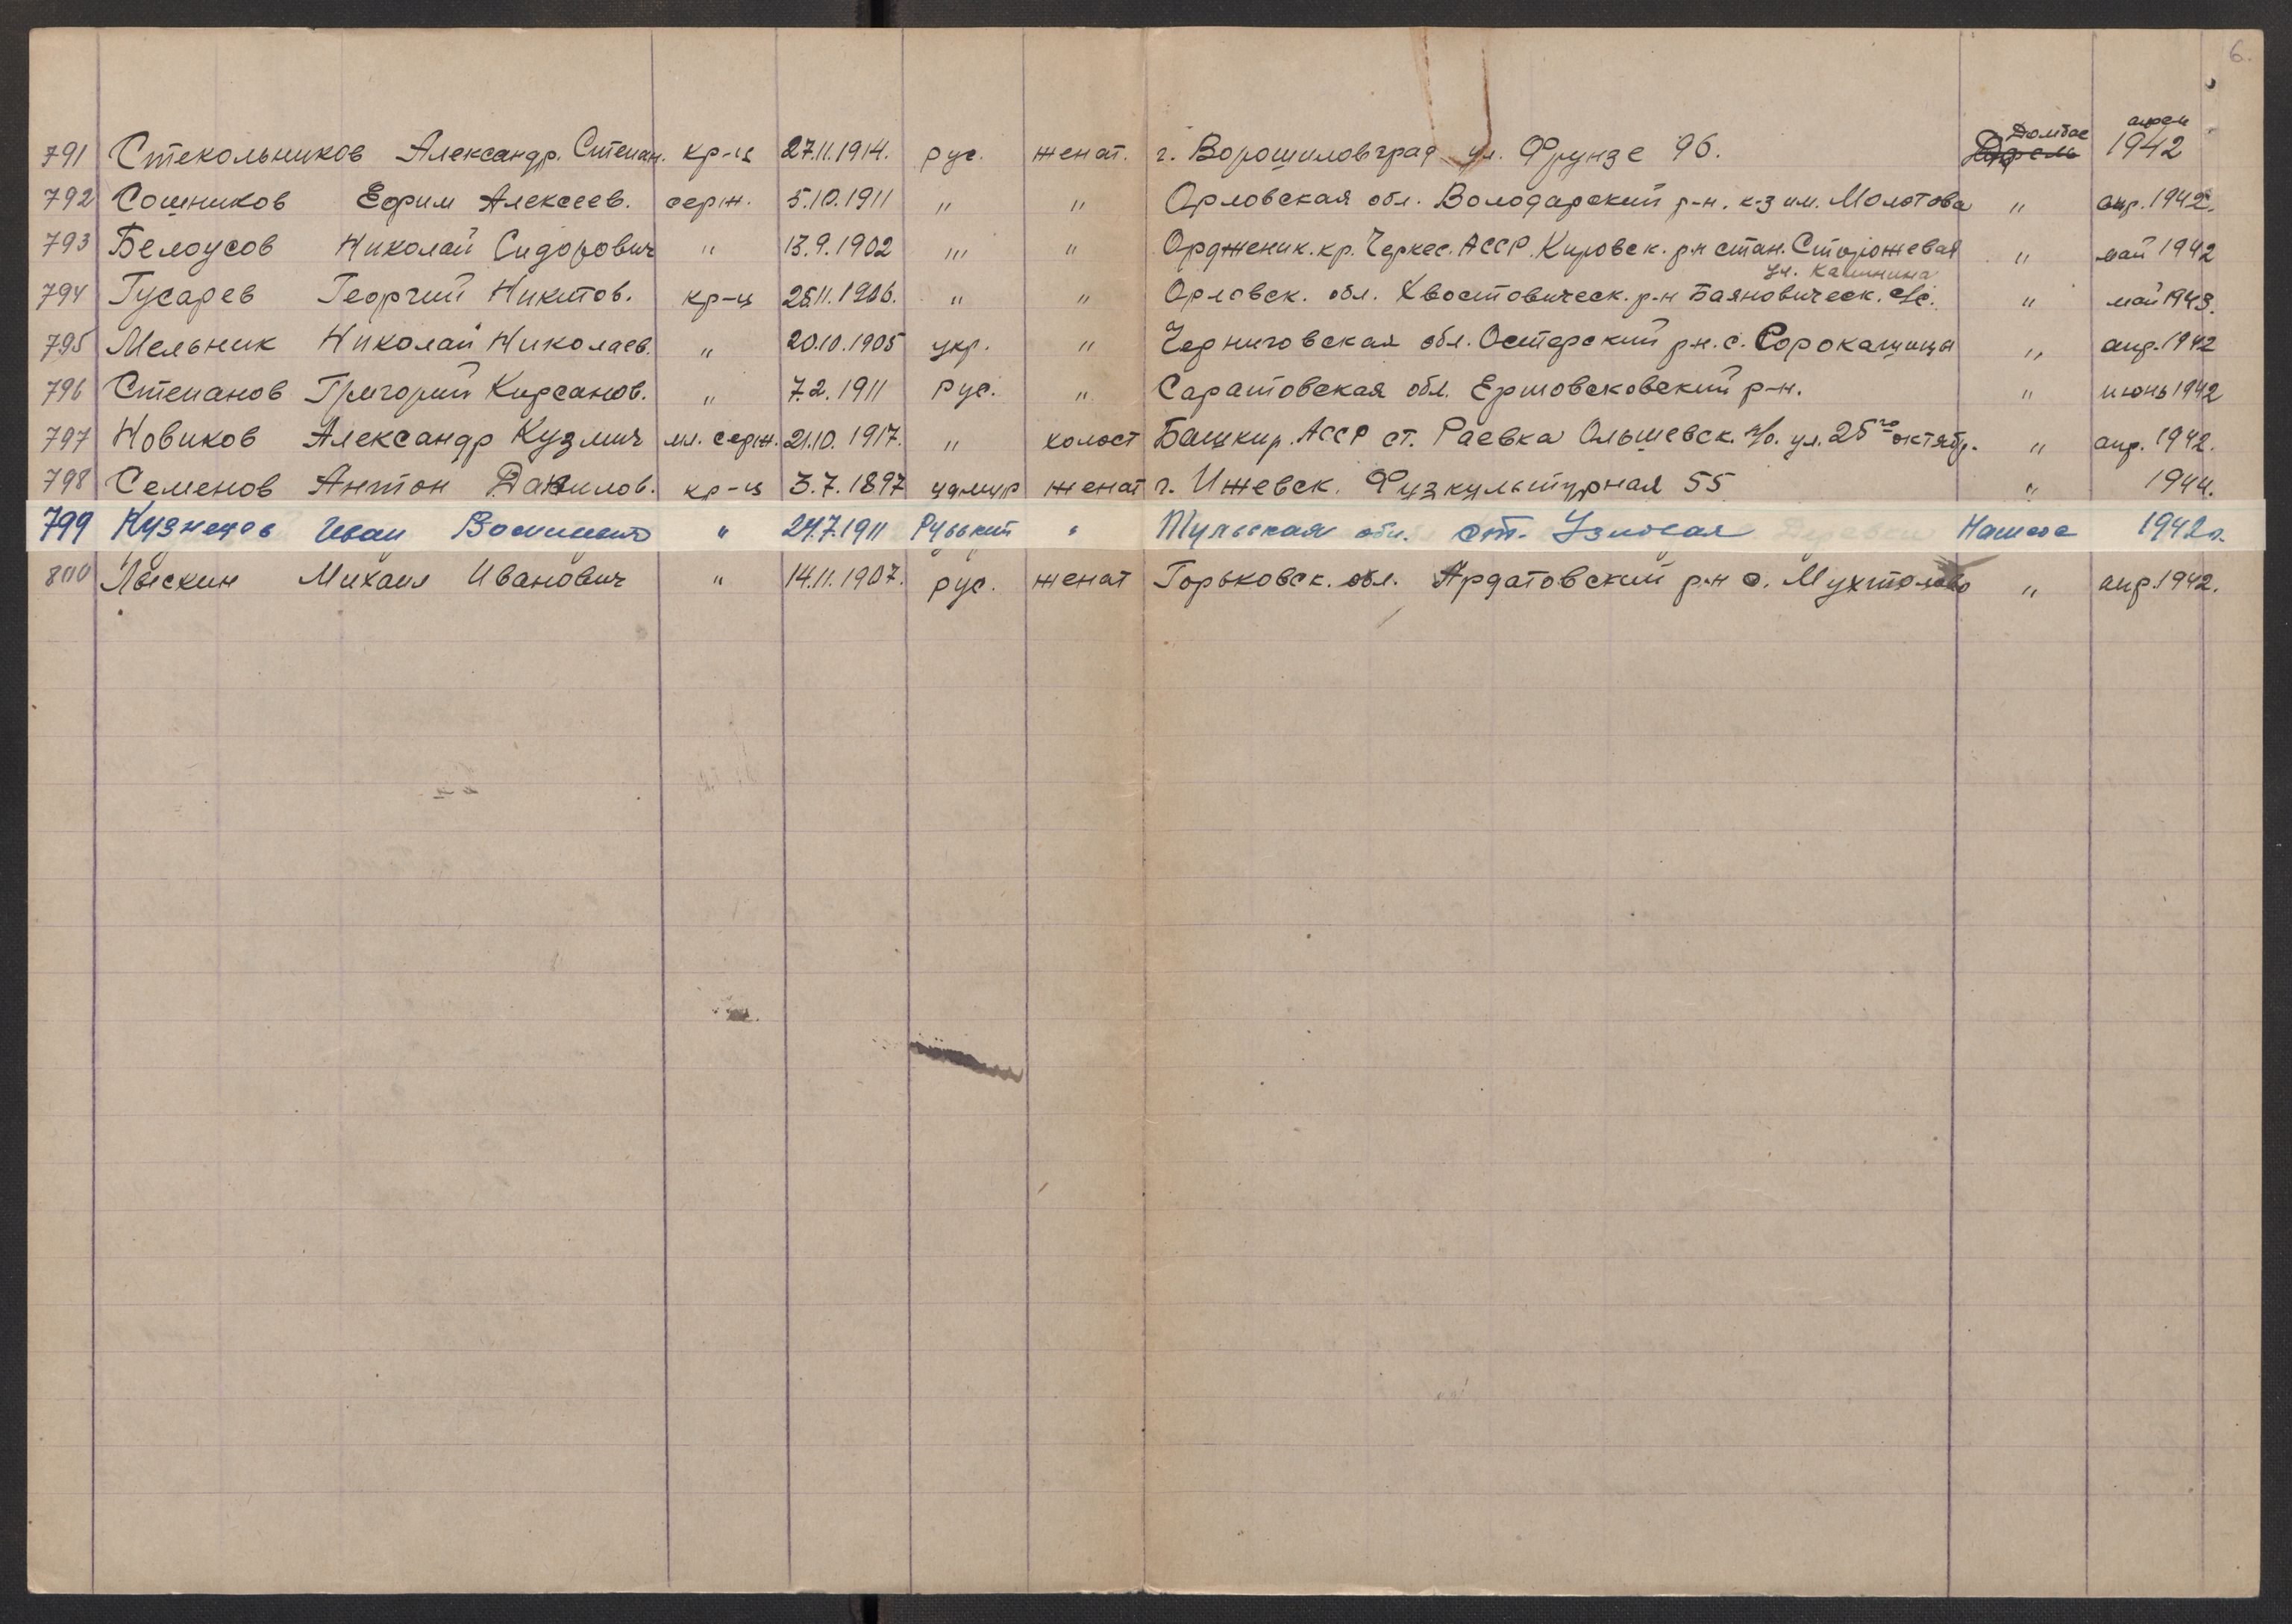 6.
791 Стекольников Александр. Степан. кр-ц 27.11.1914. рус. женат. г. Ворошиловград ул. Фрунзе 96. Домбае апрель 1942
792 Сошников Ефим Алексеев. серж. 5.10.1911 " " Орловская обл. Володарский р-н. к-з им. Молотова " апр. 1942.
793 Белоусов Николай Сидорович " 13.9.1902 " " Ордженик. кр. Черкес. АССР. Кировск. р-н стан. Сторожевая " май 1942
ул. Калинина
794 Гусарев Георгий Никитов. кр-ц 25.11.1906. " " Орловск. обл. Хвостовическ. р-н Баяновическ. с/с. " май 1943.
795 Мельник Николай Николаев. " 20.10.1905 укр. " Черниговская обл. Остерский р-н. с. Сорокашицы " апр. 1942
796 Степанов Григорий Кирсанов. " 7.2.1911 рус. " Саратовская обл. Ершовсковский р-н. " июнь 1942
797 Новиков Александр Кузмич мл. серж. 21.10.1917. " холост Башкир. АССР ст. Раевка Альшевск. ул. 25го октябр. " апр. 1942.
798 Семенов Антон Данилов. кр-ц 3.7.1897 удмур женат г. Ижевск. Физкультурная 55 " 1944.
799 Кузнецов Иван " 24.7.1911 Руьский " Тульская обл. ст. Узловая 1942г.
800 Лыскин Михаил Иванович " 14.11.1907. рус. женат Горьковск. обл. Ардатовский р-н с. Мухтолово " апр. 1942.